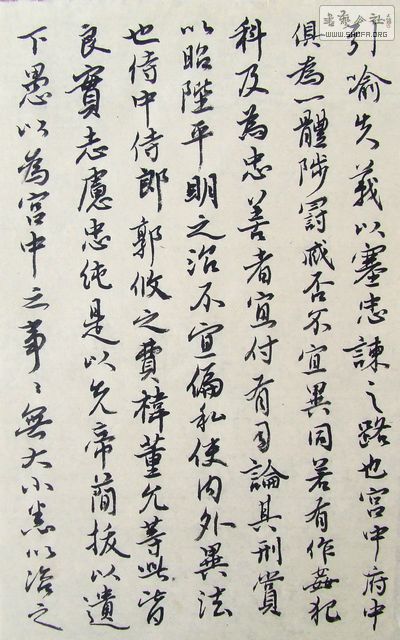 书艺公社
WWW.SHUFA.ORG
引喻失義以塞忠諫之路也宮中府中
俱為一體陟罰臧否不宜異同若有作姦犯
科及為忠善者宜付有司論其刑賞
以昭陛平明之治不宜偏私使內外異法
也侍中侍郎郭攸之費禕董允等此皆
良實志慮忠純是以先帝簡拔以遺
下愚以為宮中之事〻無大小悉以咨之